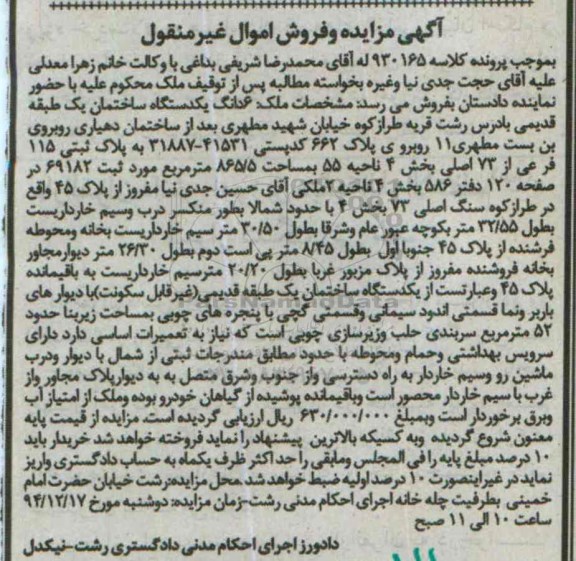 آگهی مزایده وفروش اموال غیر منقول
بموجب پرونده کلاسه ۹۳۰۱۶۵ له آقای محمدرضا شریفی بداغی با وکالت خانم زهرا معدلی
علیه آقای حجت جدی نیا وغیره بخواسته مطالبه پس از توقیف ملک محکوم علیه با حضور
نماینده دادستان بفروش می رسد: مشخصات ملک: ۶دانگ یکدستگاه ساختمان یک طبقه
قدیمی بادرس رشت قریه طرازکوه خیابان شهید مطهری بعد از ساختمان دهیاری روبروی
بن بست مطهری۱۱ روبرو ی پلاک ۶۶۲ کدپستی ۴۱۵۳۱-۳۱۸۸۷ به پلاک ثبتی ۱۱۵
فر عی از ۷۳ اصلی بخش ۴ ناحیه ۵۵ بمساحت ۸۶۵/۵ مترمربع مورد ثبت ۶۹۱۸۲ در
صفحه ۱۲۰ دفتر ۵۸۶ بخش ۴ ناحیه ۲ملکی آقای حسین جدی نیا مفروز از پلاک ۴۵ واقع
در طرازکوه سنگ اصلی ۷۳ بخش ۴ با حدود شمالا بطور منکسر درب وسیم خارداریست
بطول ۳۲/۵۵ متر بکوچه عبور عام وشرقا بطول ۳۰/۵۰ متر سیم خارداریست بخانه ومحوطه
فرشنده از پلاک ۴۵ جنوبا اول بطول ۸/۴۵ متر پی است دوم بطول ۲۶/۳۰ متر دیوارمجاور
بخانه فروشنده مفروز از پلاک مزبور غربا بطول ۲۰/۲۰ مترسیم خارداریست به باقیمانده
پلاک ۴۵ وعبارتست از یکدستگاه ساختمان یک طبقه قدیمی(غیر قابل سکونت)با دیوار های
باربر ونما قسمتی اندود سیمانی وقسمتی گچی با پنجره های چوبی بمساحت زیربنا حدود
۵۲ مترمربع سربندی حلب وزیرسازی چوبی است که نیاز به تعمیرات اساسی دارد دارای
سرویس بهداشتی وحمام ومحوطه با حدود مطابق مندرجات ثبتی از شمال با دیوار ودرب
ماشین رو وسیم خاردار به راه دسترسی واز جنوب وشرق متصل به به دیوارپلاک مجاور واز
غرب با سیم خاردار محصور است وباقیمانده پوشیده از گیاهان خودرو بوده وملک از امتیاز آب
وبرق برخوردار است وبمبلغ ۶۳۰/۰۰۰/۰۰۰ ریال ارزیابی گردیده است. مزایده از قیمت پایه
معنون شروع گردیده وبه کسیکه بالاترین پیشنهاد را نماید فروخته خواهد شد خریدار باید
۱۰ درصد مبلغ پایه را فی المجلس ومابقی را حد اکثر ظرف یکماه به حساب دادگستری واریز
نماید در غیر اینصورت ۱۰ درصد اولیه ضبط خواهد شد.محل مزایده:رشت خیابان حضرت امام
خمینی بطرفیت چله خانه اجرای احکام مدنی رشت-زمان مزایده: دوشنبه مورخ ۹۴/۱۲/۱۷
ساعت ۱۰ الی ۱۱ صبح
دادورز اجرای احکام مدنی دادگستری رشت-نیکدل